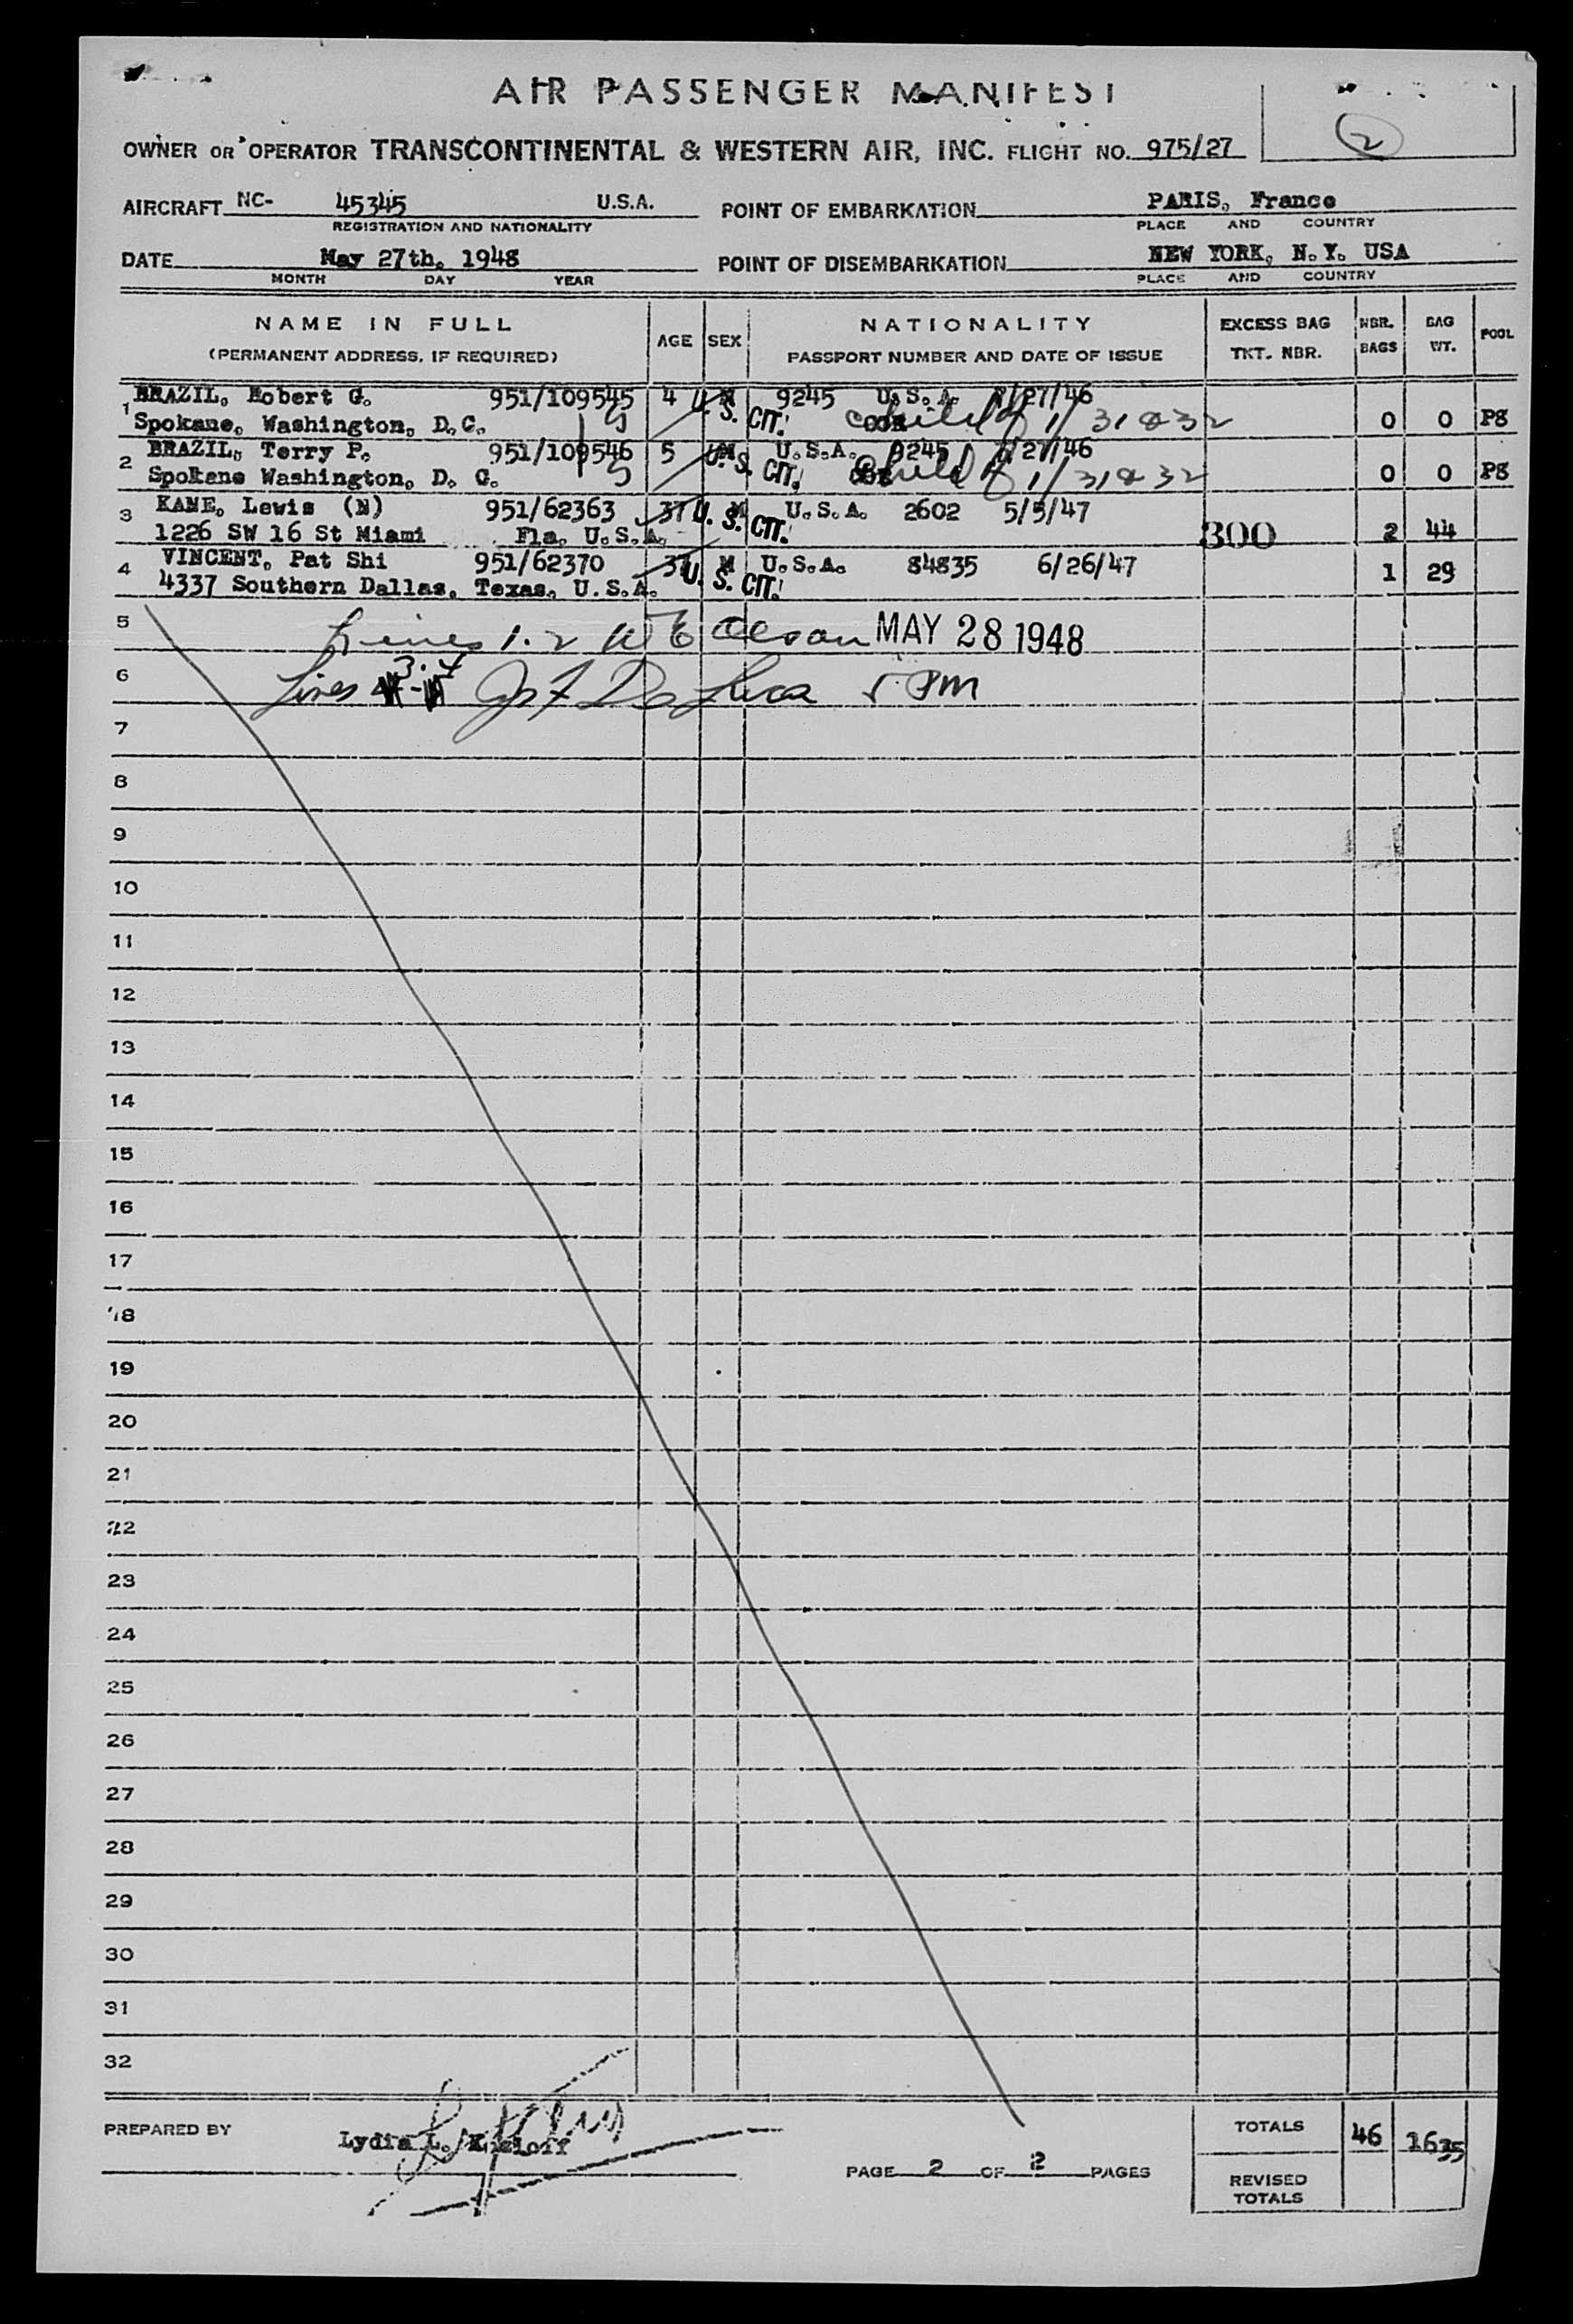 AIR PASSENGER MANIFEST
2
OWNER OR OPERATOR TRANSCONTINENTAL & WESTERN AIR, INC. FLIGHT NO. 975/27
AIRCRAFT NC- 45345 U.S.A. POINT OF EMBARKATION PARIS, France
REGISTRATION AND NATIONALITY PLACE AND COUNTRY
DATE May 27th, 1948 POINT OF DISEMBARKATION NEW YORK, N.Y. USA
MONTH DAY YEAR PLACE AND COUNTRY
NAME IN FULL AGE SEX NATIONALITY EXCESS BAG NBR. BAG POOL
(PERMANENT ADDRESS, IF REQUIRED) PASSPORT NUMBER AND DATE OF ISSUE TKT. NBR. BAGS WT.
1 BRAZIL, Robert G. 951/109545 4 M 9245 U.S.A. /27/46
Spokane, Washington, D.C. U.S. CIT. child of 1/31 & 32 0 0 PS
2 BRAZIL, Terry P. 951/109546 5 M U.S.A. 9245 /27/46
Spokane Washington, D. C. U.S. CIT. child of 1/31 & 32 0 0 PS
3 KANE, Lewis (N) 951/62363 37 M U.S.A. 2602 5/5/47
1226 SW 16 St Miami Fla, U.S.A. U.S. CIT. 300 2 44
4 VINCENT, Pat Shi 951/62370 37 M U.S.A. 84835 6/26/47
4337 Southern Dallas, Texas, U.S.A. U.S. CIT. 1 29
5 Lines 1-2 W E Olson MAY 28 1948
6 Lines 3-4 De Luca 5 PM
7
8
9
10
11
12
13
14
15
16
17
18
19
20
21
22
23
24
25
26
27
28
29
30
31
32
PREPARED BY Lydia L. TOTALS 46
PAGE 2 OF 2 PAGES REVISED TOTALS